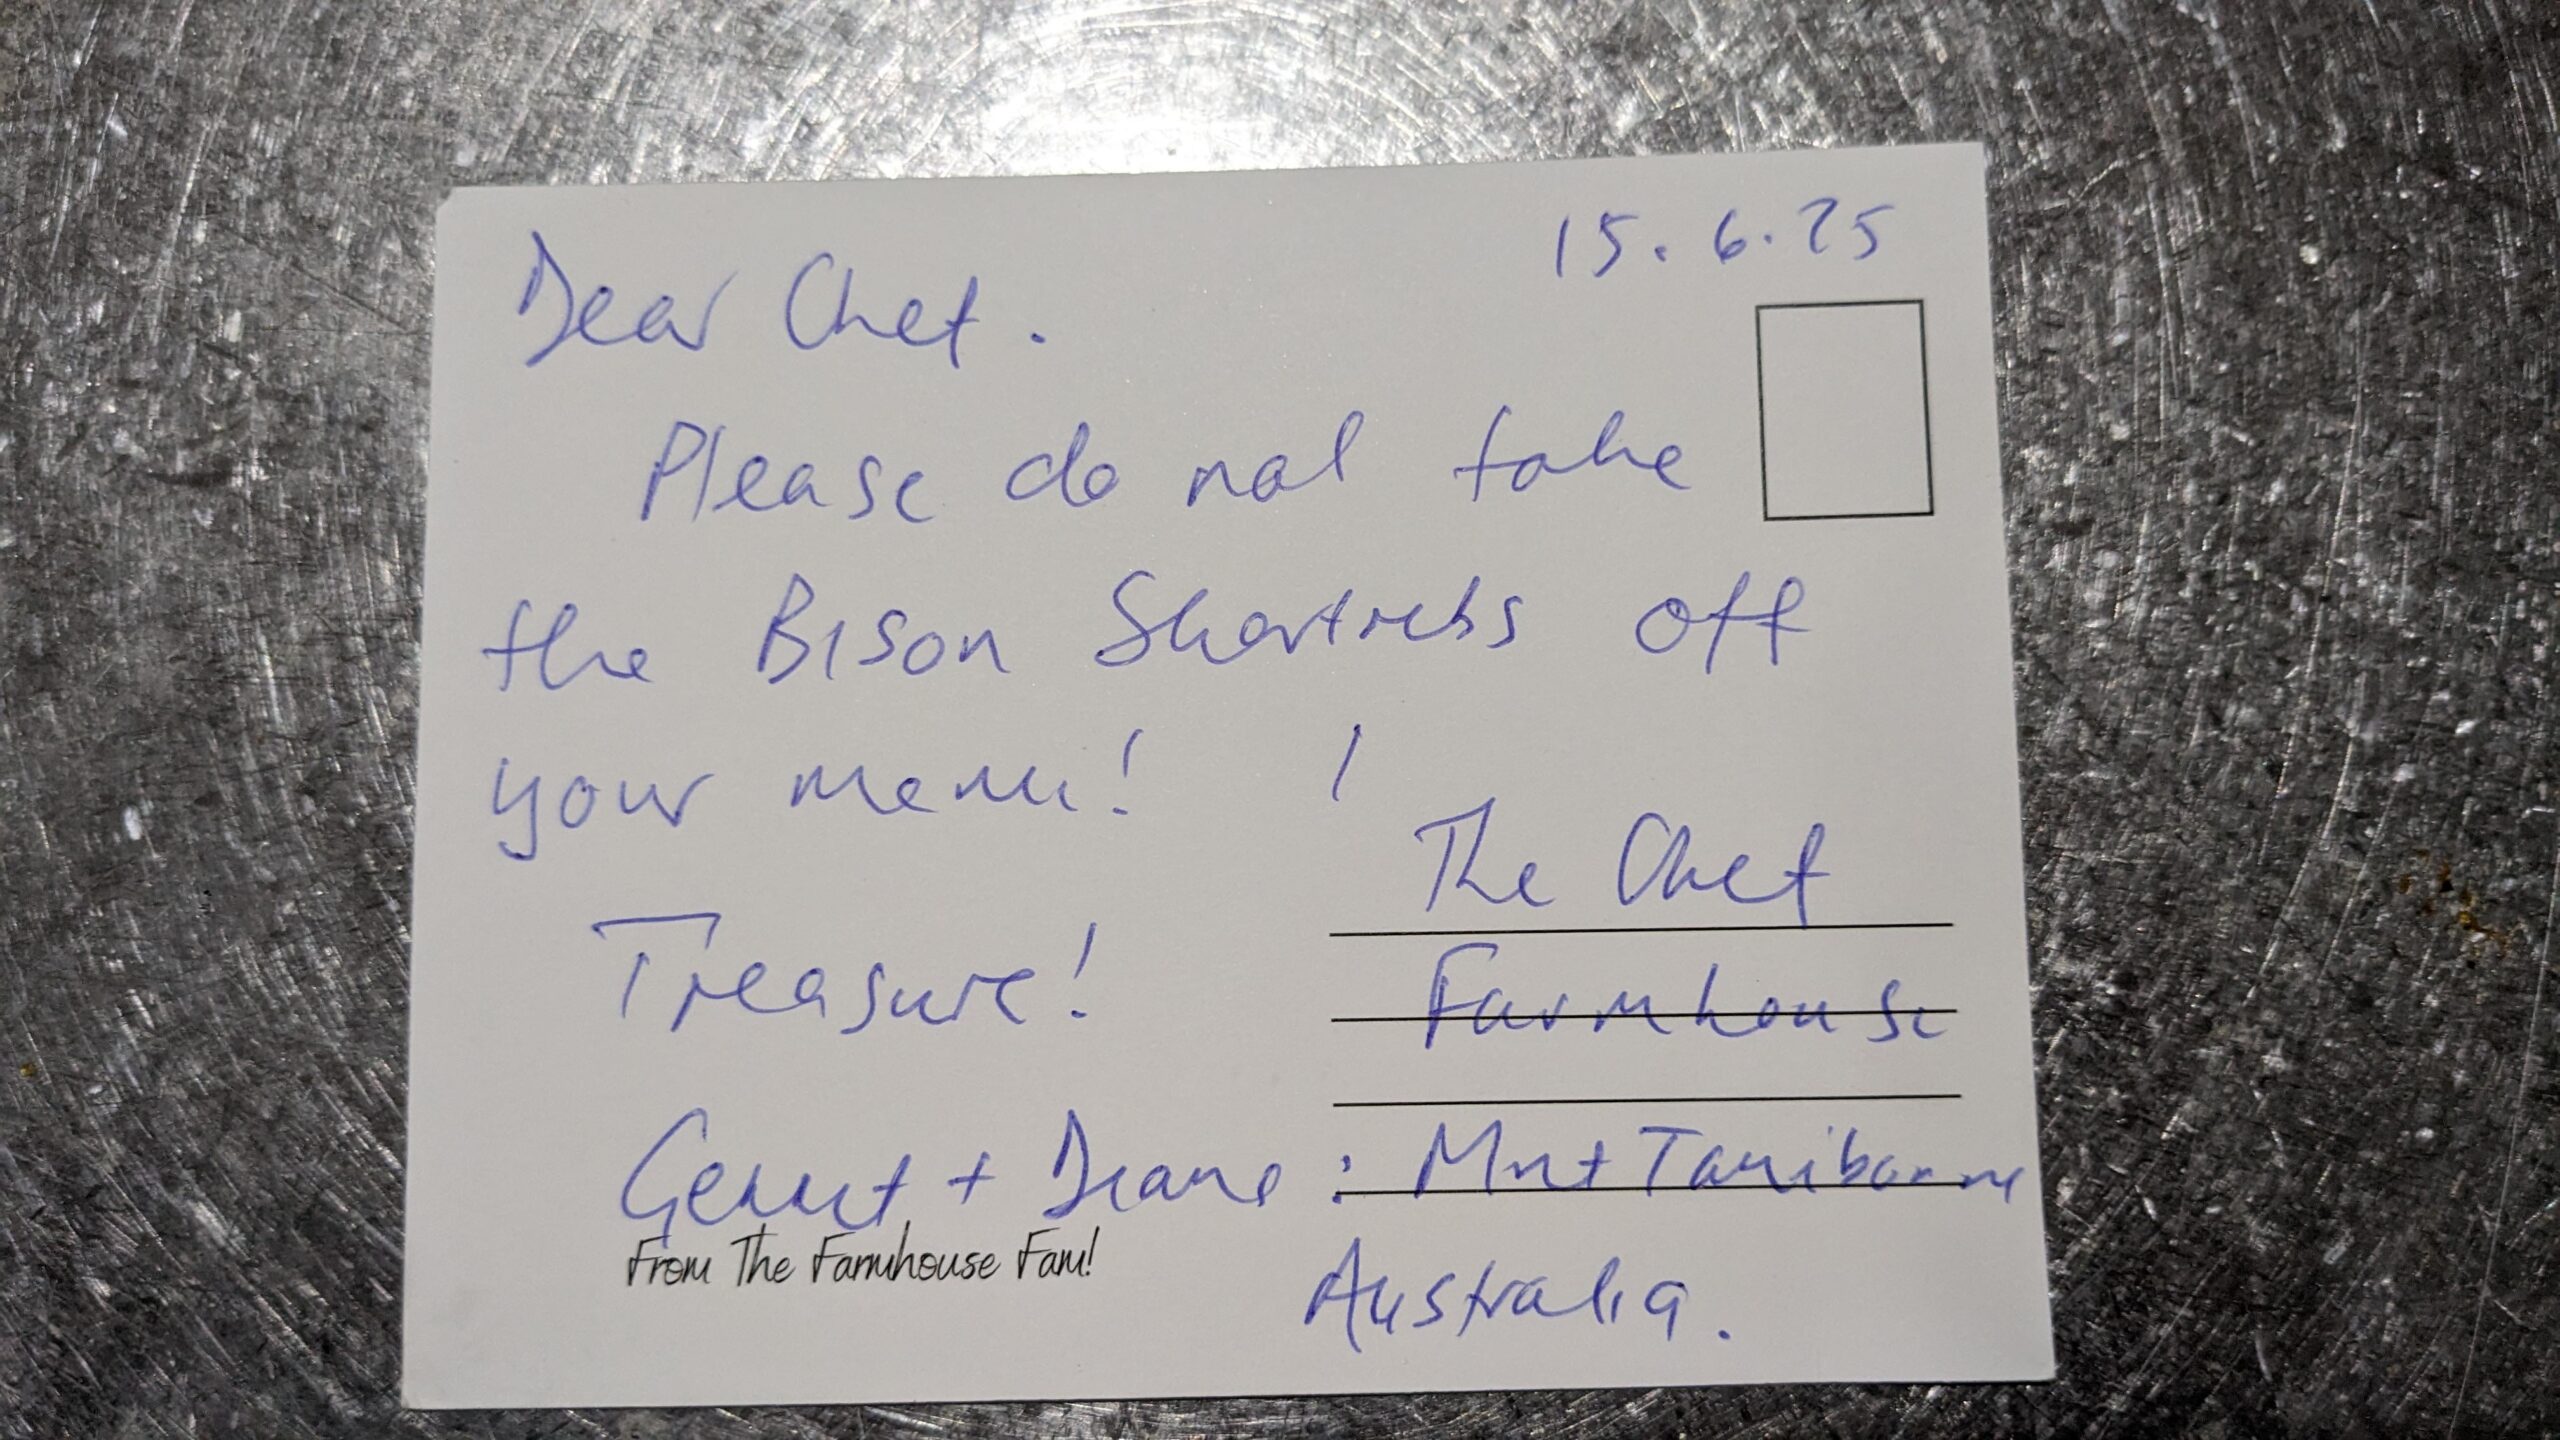 15.6.25
Dear Chef.
Please do not take
the Bison Shortribs off
your menu!
Treasure!
Gerrit + Diane
From The Farmhouse Fam!
The Chef
Farmhouse
Mnt Tamborine
Australia.